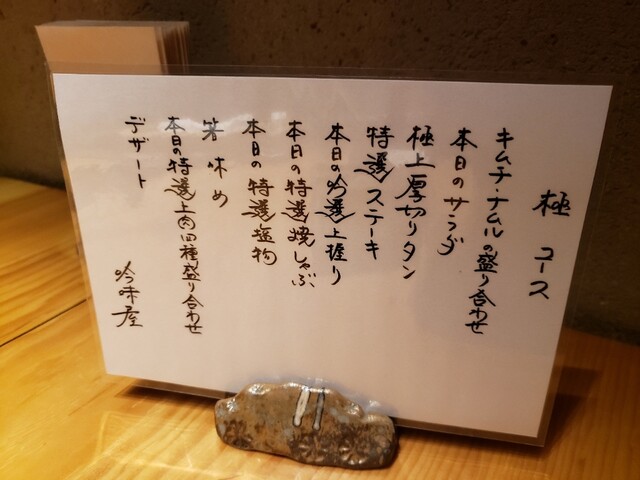 極 コース
キムチ・ナムルの盛り合わせ
本日のサラダ
極上厚切りタン
特選ステーキ
本日の吟選上握り
本日の特選焼しゃぶ
本日の特選塩物
箸 味め
本日の特選上肉四種盛り合わせ
デザート
吟味屋